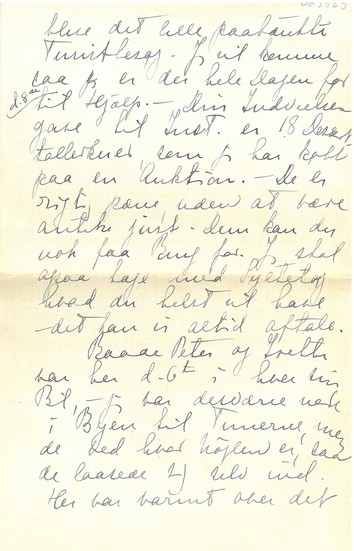 blive det hele paatænkte
Turistbesøg. - Jeg vil komme
saa jeg er der hele Dagen før
d. 8de
til Hjælp. - Din Indvielses
gave til Inst. er 18 Dessert
tallerkner som jeg har købt
paa en Auktion. - De er
rigtig pæne uden at være
antike just - Dem kan du
nok faa Brug for. Jeg skal
ogsaa tage med Sytøjet og
hvad du helst vil have
- det kan vi altid aftale.
Baade Peter og Grethe
var her d. 6te i hver sin
Bil, - jeg var desværre nede
i Byen til Turnerne, men
de ved hvor Nøglen er, saa
de laasede sig selv ind.
Her var varmt over det